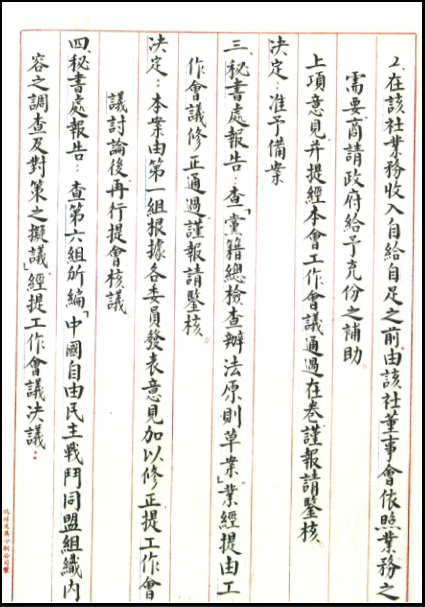 2.在該社業務收入自給自足之前,由該社董事會依照業務之
需要,商請政府給予充份之補助。
上項意見,并提經本會工作會議通過在卷,謹報請鑒核
決定:准予備案
三、秘書處報告:查「黨籍總檢查辦法原則草案」業經提由工
作會議修正通過,謹報請鑒核。
決定:本案由第一組根據各委員發表意見加以修正,提工作會
議討論後,再行提會核議
四、秘書處報告:查第六組所編「中國自由民主戰鬥同盟組織內
容之調查及對策之擬議」,經提工作會議決議: